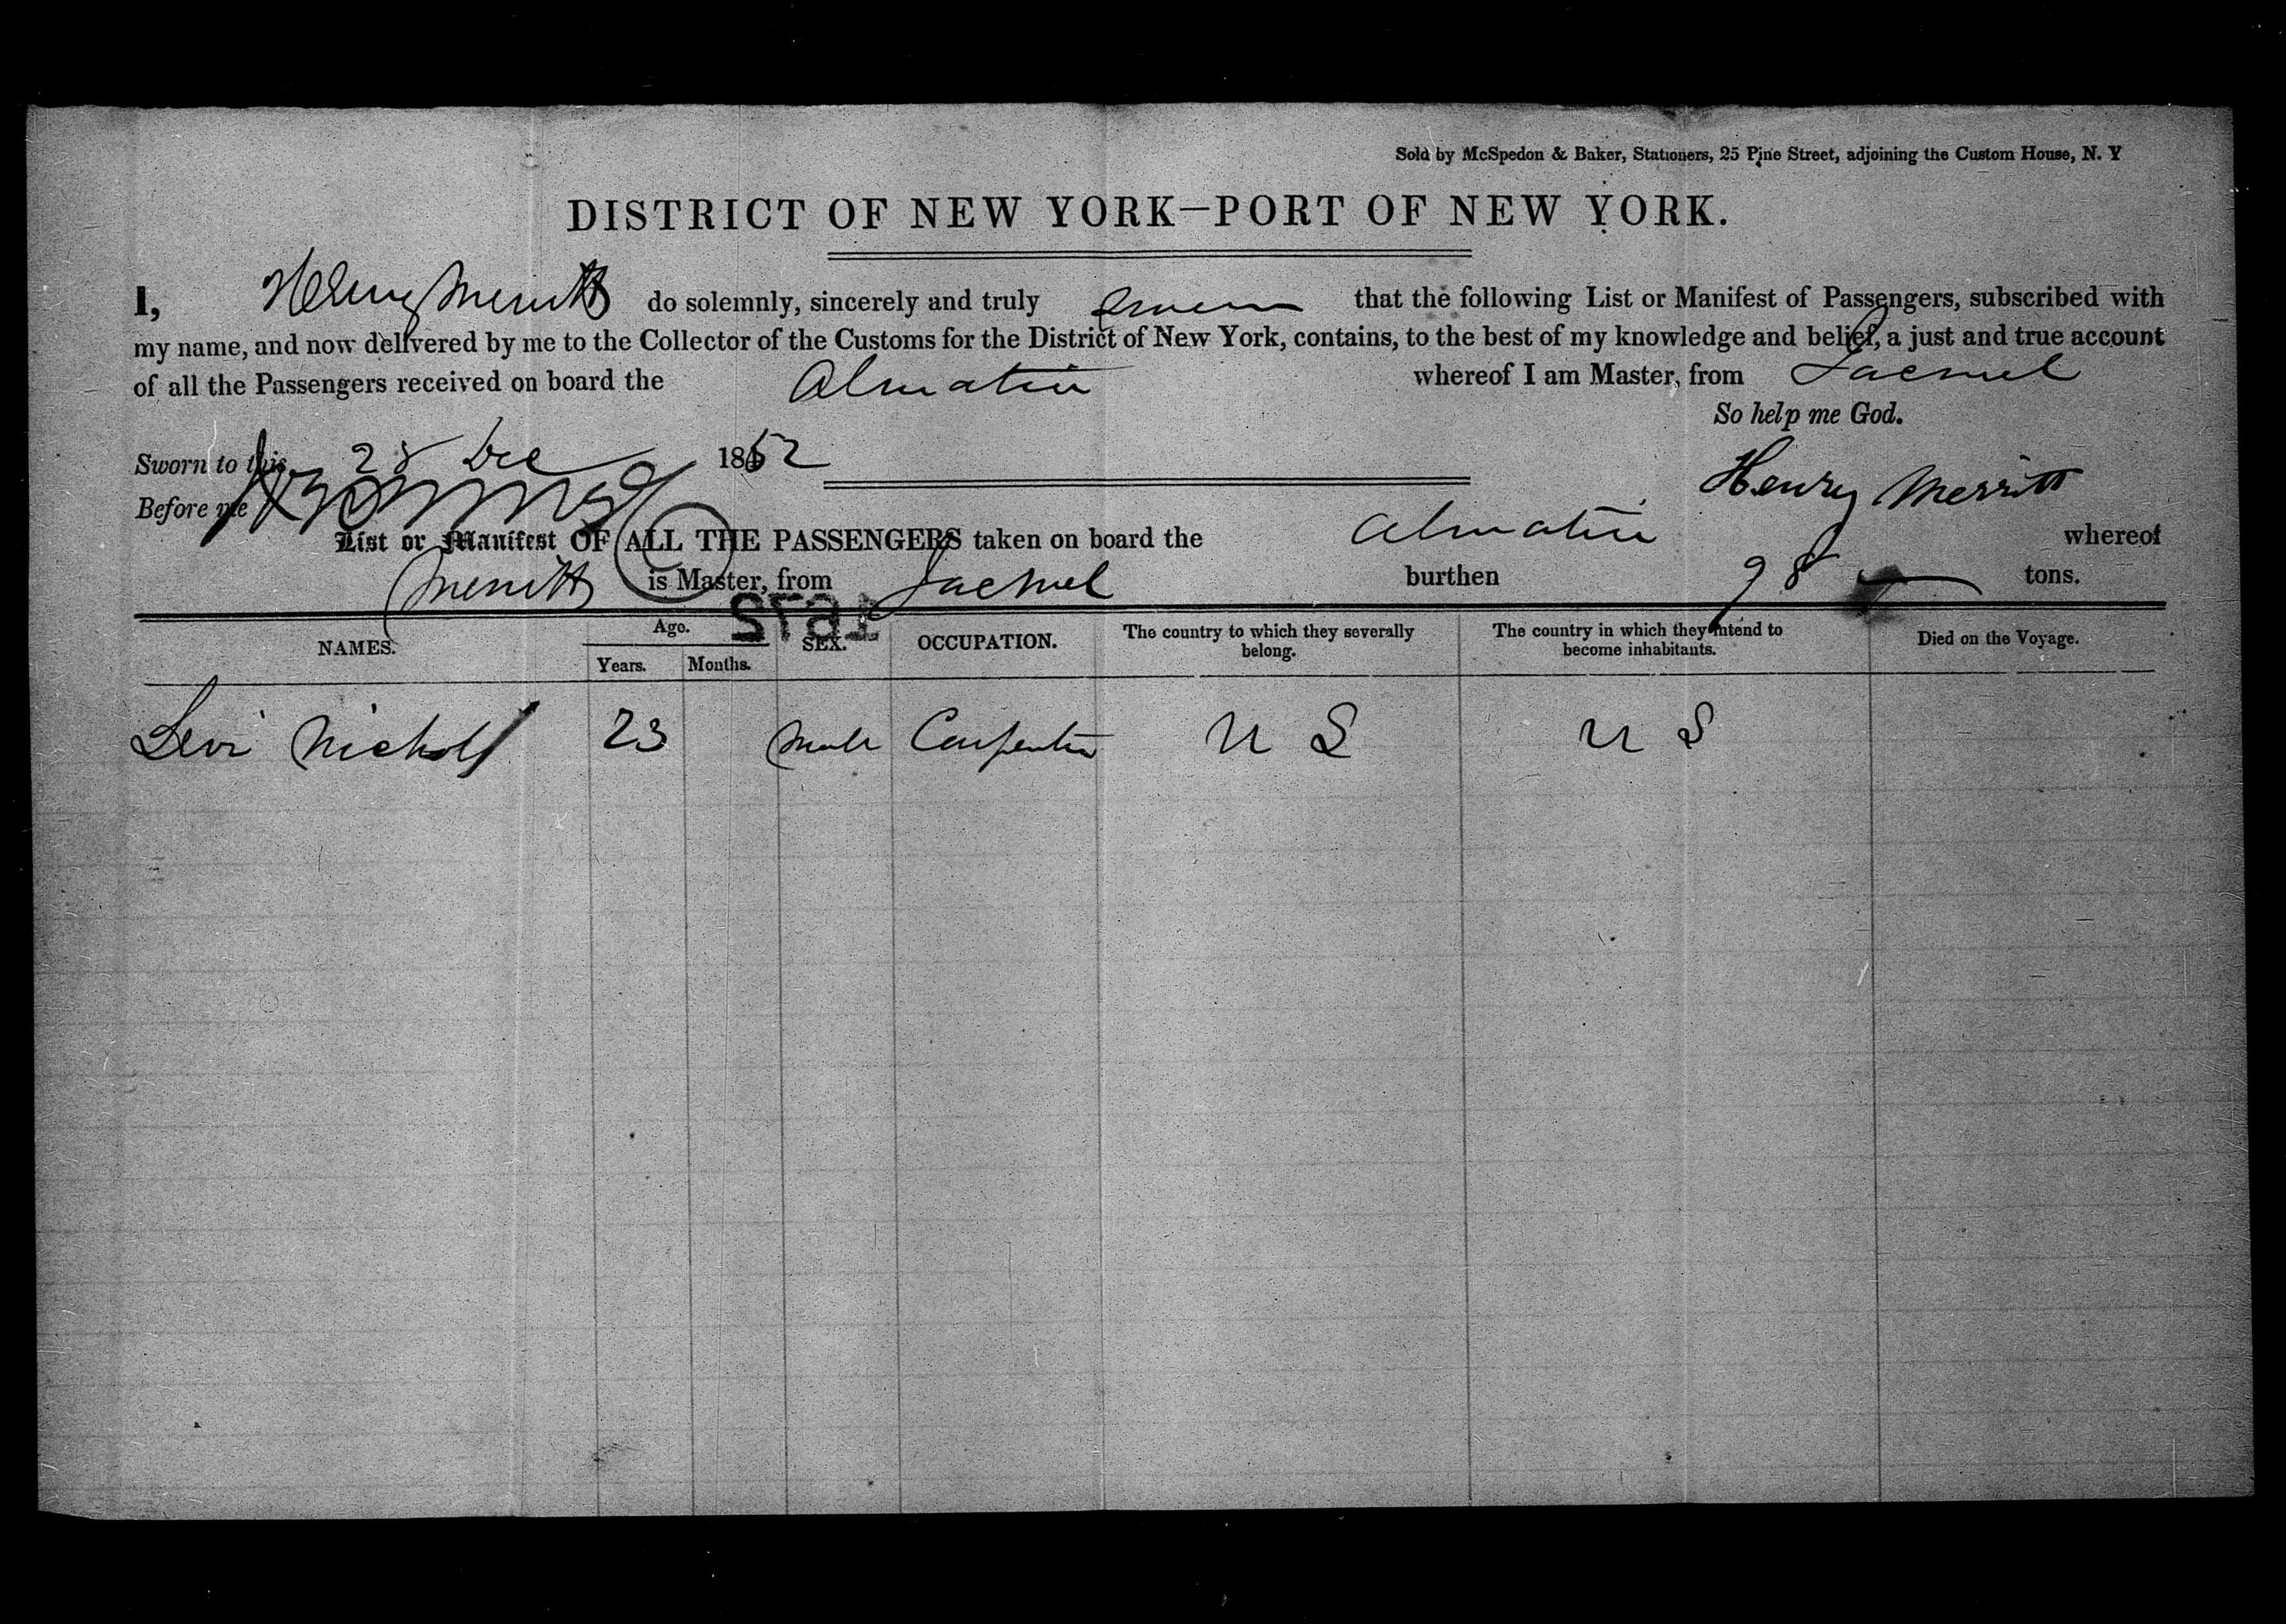 Sold by McSpedon & Baker, Stationers, 25 Pine Street, adjoining the Custom House, N. Y
DISTRICT OF NEW YORK—PORT OF NEW YORK.
I, Henry Merritt do solemnly, sincerely and truly swear that the following List or Manifest of Passengers, subscribed with
my name, and now delivered by me to the Collector of the Customs for the District of New York, contains, to the best of my knowledge and belief, a just and true account
of all the Passengers received on board the Almatia whereof I am Master, from Jacmel
So help me God.
Sworn to this 28 Dec 1852
Henry Merritt
Before me
List or Manifest OF ALL THE PASSENGERS taken on board the Almatia whereof
Merritt is Master, from Jacmel burthen 98 tons.
NAMES. Age. Years. Months. SEX. OCCUPATION. The country to which they severally belong. The country in which they intend to become inhabitants. Died on the Voyage.
Levi Nichols 23 Male Carpenter U S U S